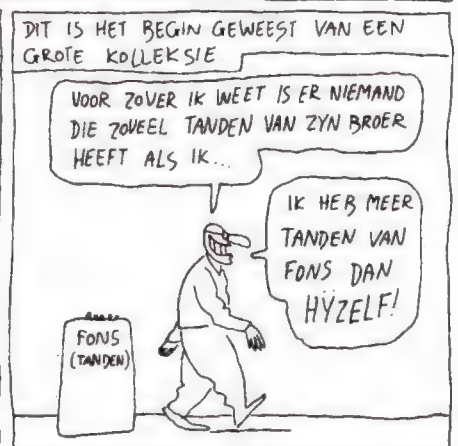 DIT IS HET BEGIN GEWEEST VAN EEN
GROTE KOLLEKSIE
VOOR ZOVER IK WEET IS ER NIEMAND
DIE ZOVEEL TANDEN VAN ZYN BROER
HEEFT ALS IK...
IK HEB MEER
TANDEN VAN
FONS DAN
HŸZELF!
FONS
(TANDEN)